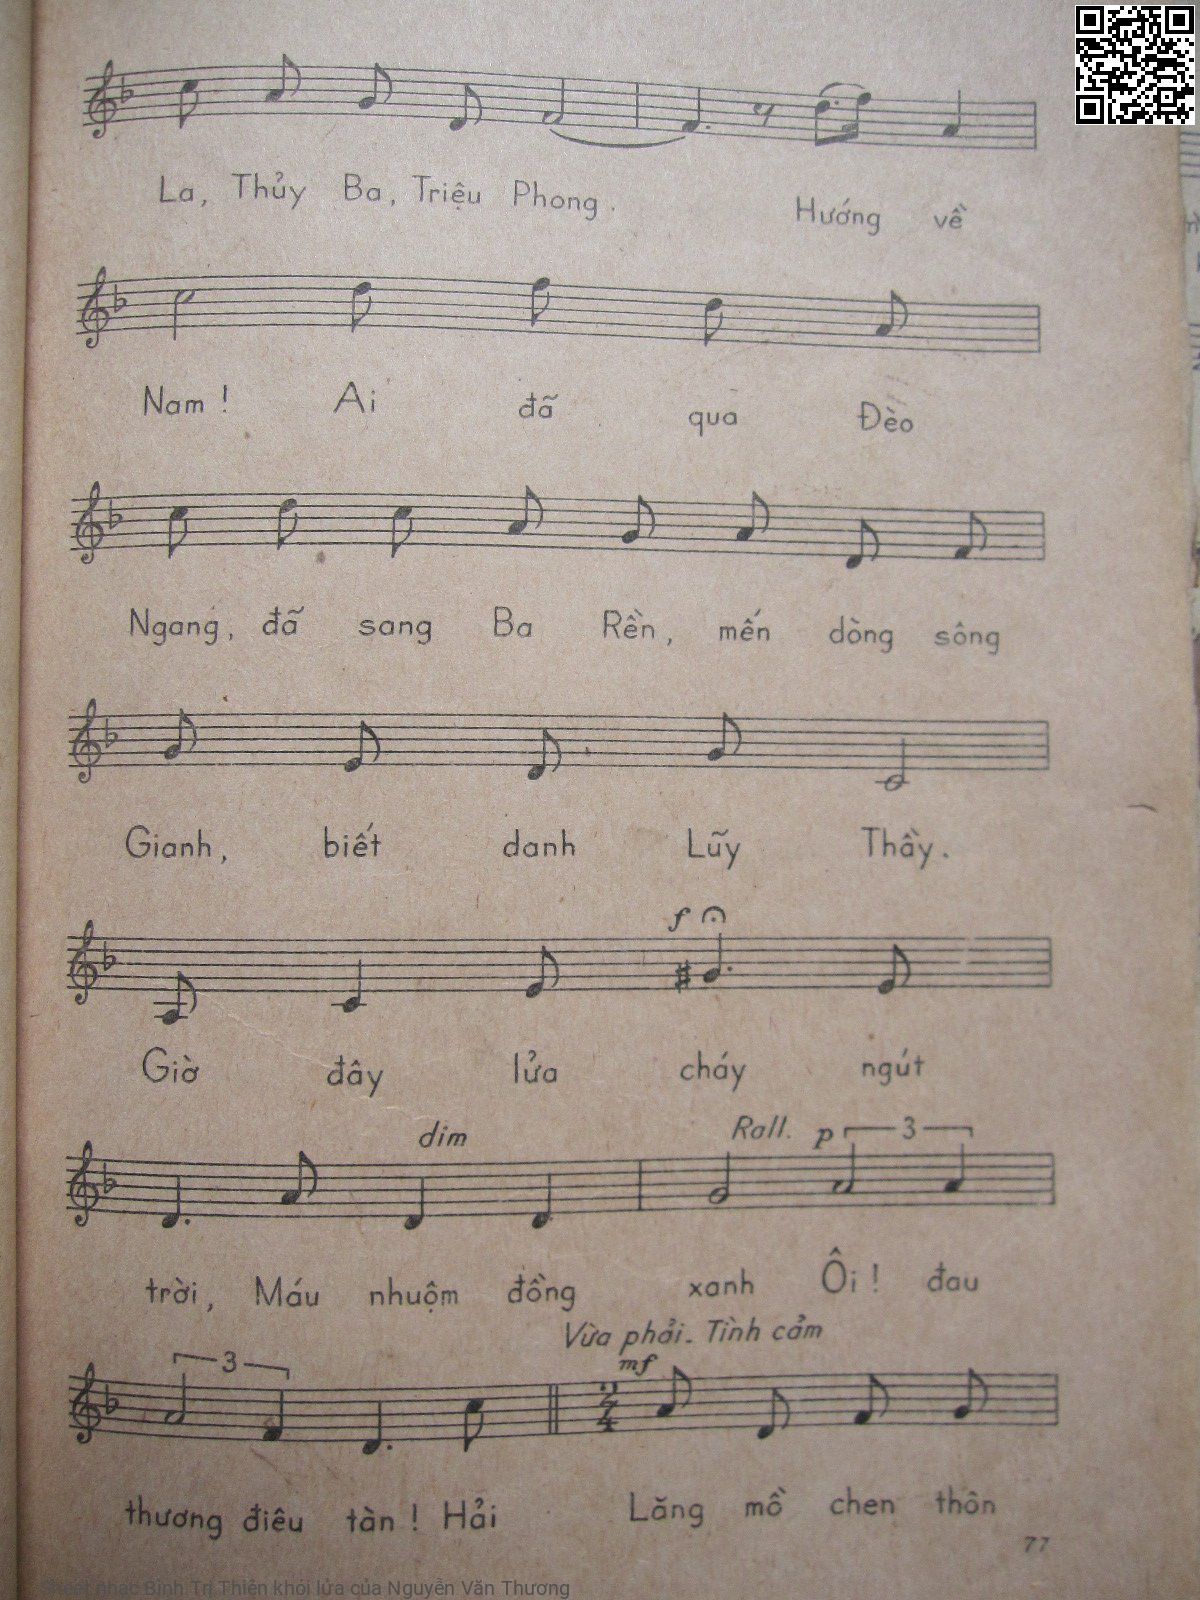 La, Thủy Ba, Triệu Phong. Hướng về
Nam ! Ai đã qua Đèo
Ngang, đã sang Ba Rền, mến dòng sông
Gianh, biết danh Lũy Thầy.
f
Giờ đây lửa cháy ngút
dim Rall. p 3
trời, Máu nhuộm đồng xanh Ôi ! đau
Vừa phải. Tình cảm
3 mf
2
4
thương điêu tàn ! Hải Lăng mồ chen thôn
77
Sheet nhạc Bình Trị Thiên khói lửa của Nguyễn Văn Thương